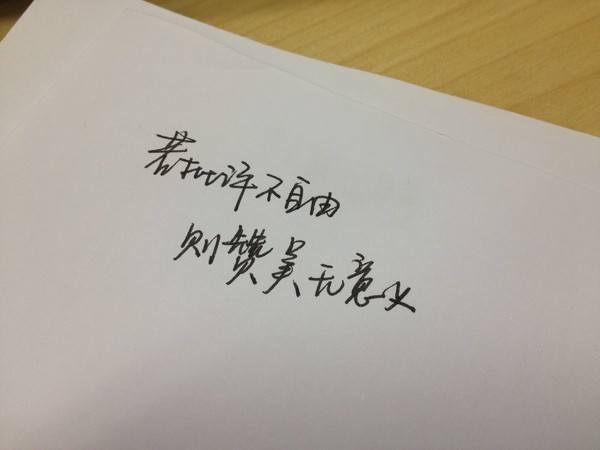 若批评不自由
则赞美无意义